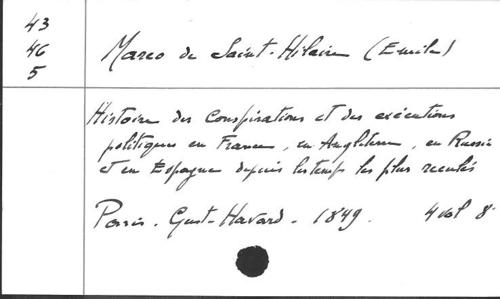 43
46
5
Marco de Saint-Hilaire (Emile)
Histoire des Conspirations et des exécutions
politiques en France, en Angleterre, en Russie
et en Espagne depuis les temps les plus reculés
Paris. Gust-Havard. 1849. 4 vol 8°